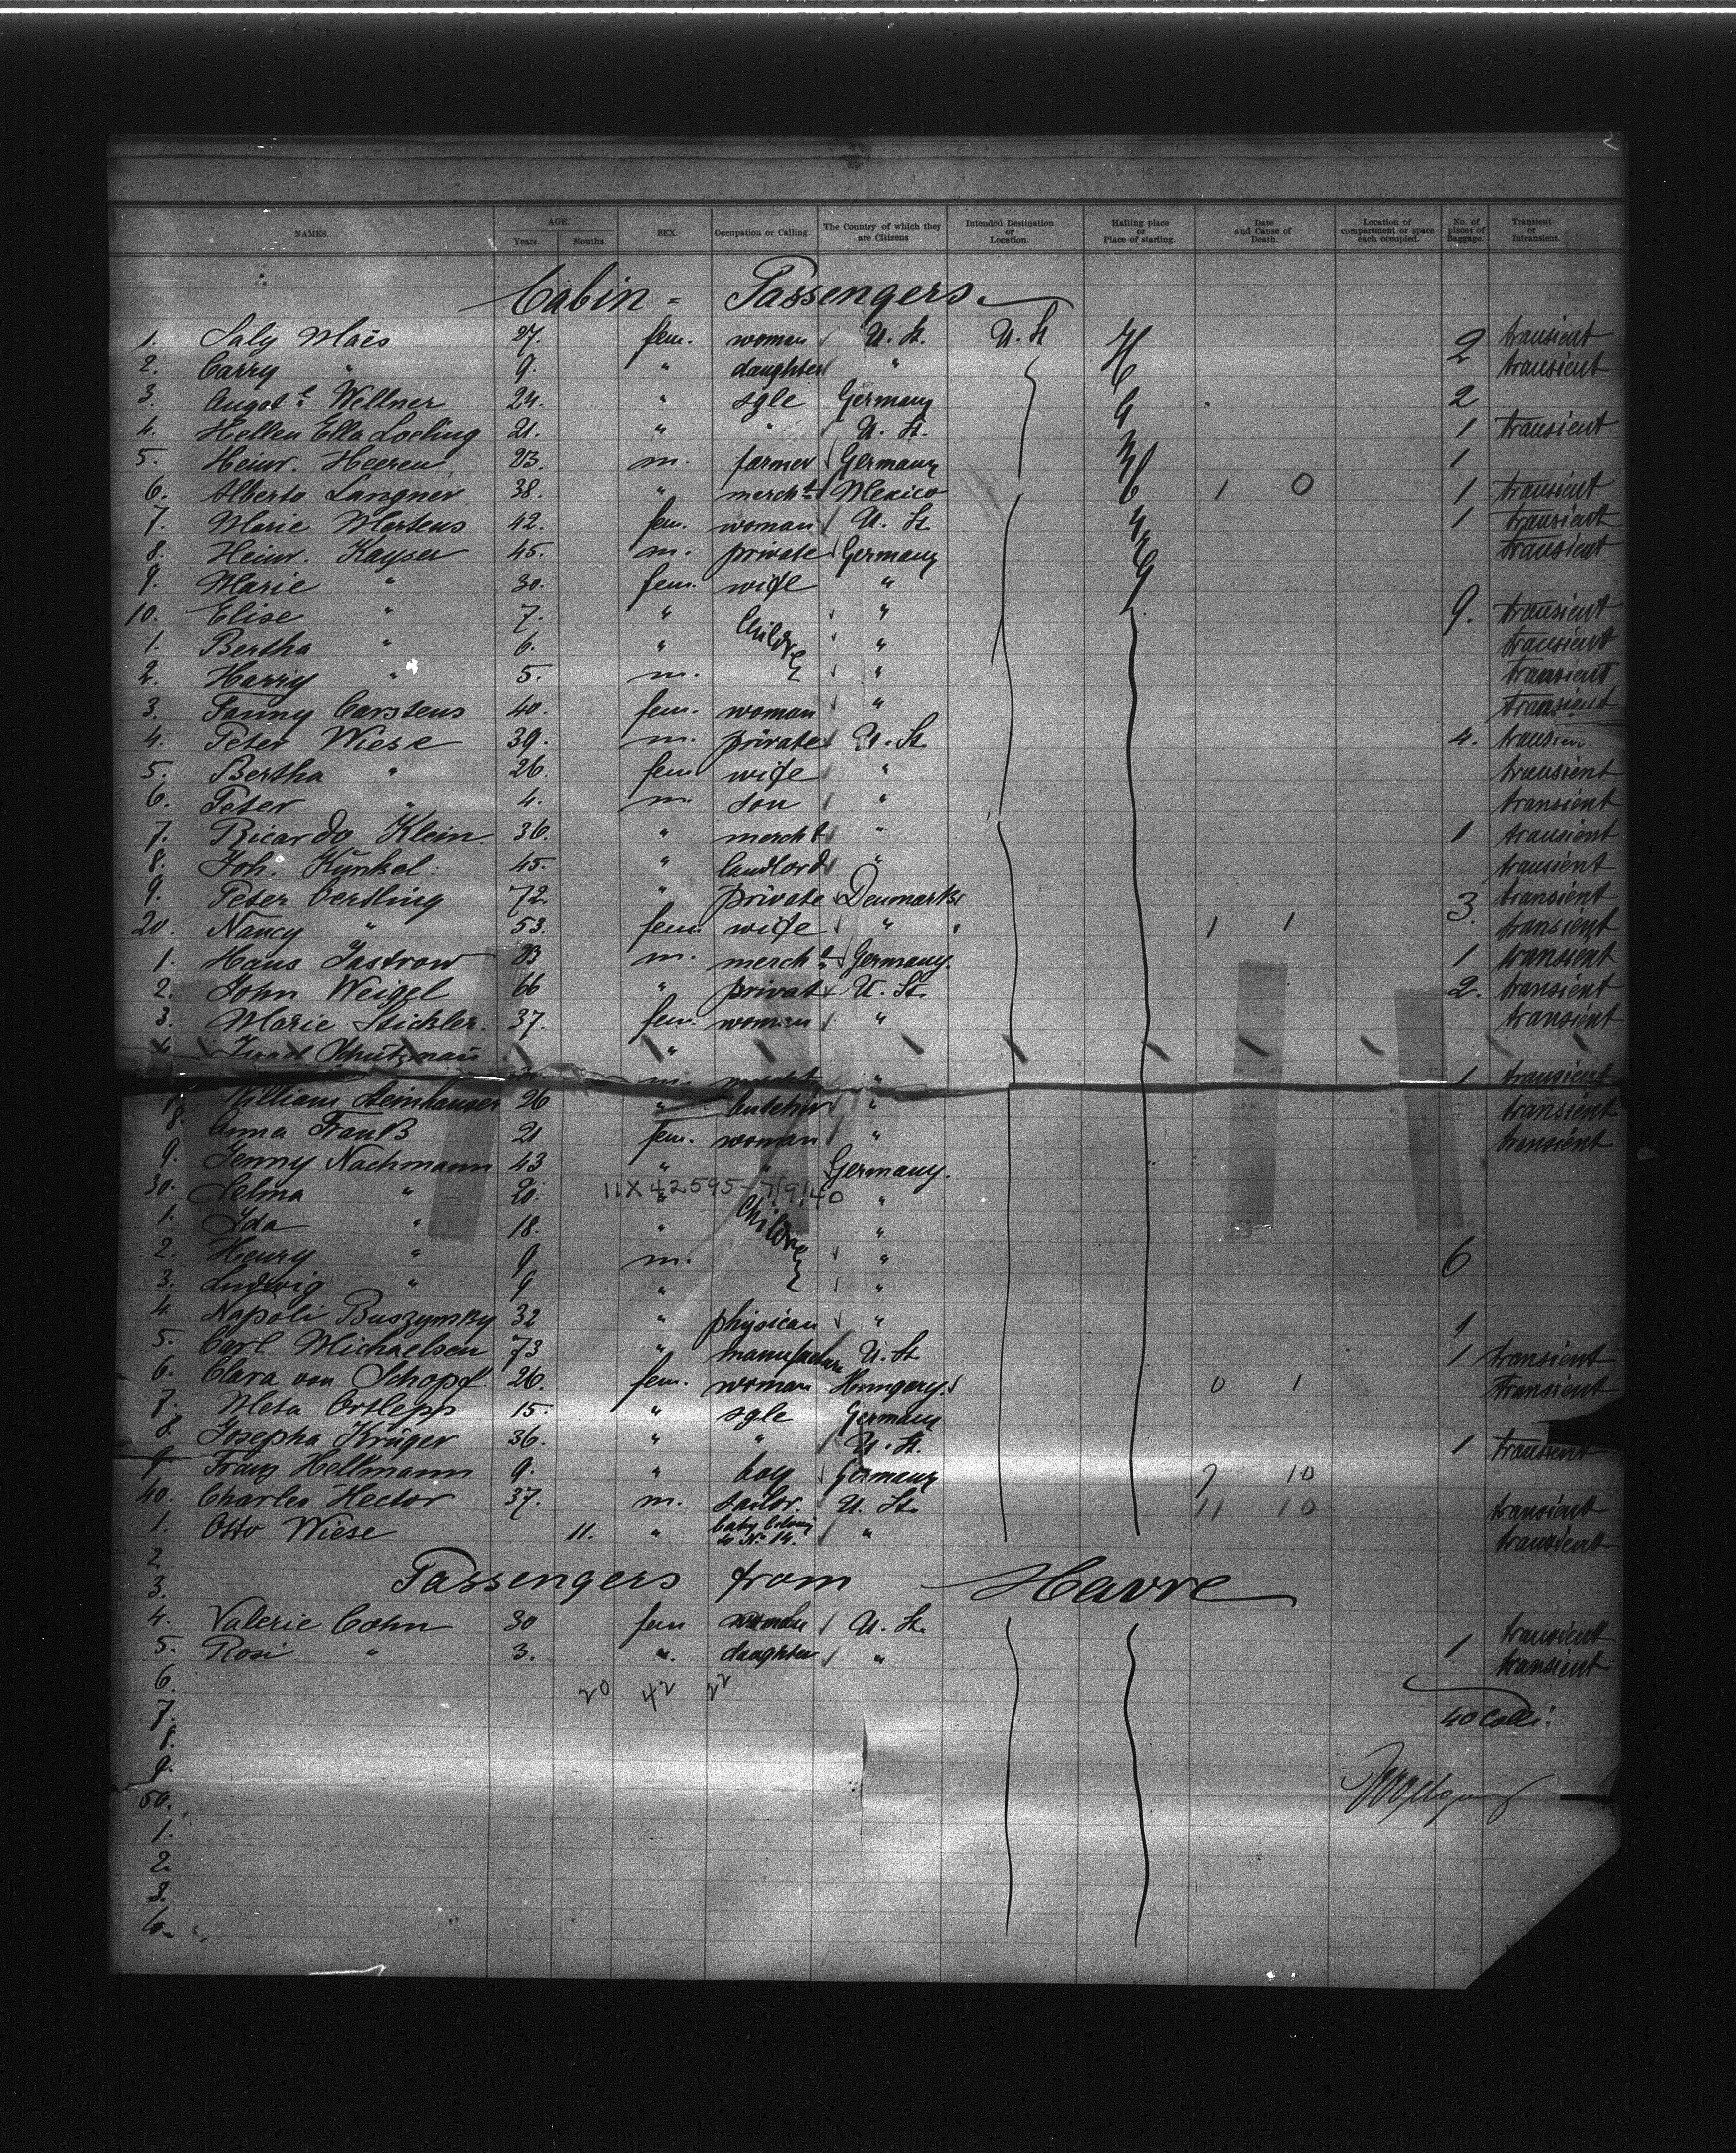 NAMES. AGE. Years. Months. SEX. Occupation or Calling. The Country of which they are Citizens Intended Destination or Location. Hailing place or Place of starting. Date and Cause of Death. Location of compartment or space each occupied. No. of pieces of Baggage. Transient or Intransient.
Cabin - Passengers.
1. Saly Maës 27. fem. woman U. St. U. St 2 transient
2. Carry " 9. " daughter " transient
3. Wellner 24. " sgle Germany 2
4. Hellen Ella Loeling 21. " " U. St. 1 transient
5. Heinr. Heeren 23. m. farmer Germany 1
6. Alberto Langner 38. " mercht Mexico 1 0 1 transient
7. Marie Martens 42. fem. woman U. St. 1 transient
8. Heinr. Kayser 45. m. private Germany transient
9. Marie " 30. fem. wife "
10. Elise " 7. " Children " 9. transient
1. Bertha " 6. " " transient
2. Harry " 5. m. " transient
3. Fanny Carstens 40. fem. woman " transient
4. Peter Wiese 39. m. private U. St. 4. transient
5. Bertha " 26. fem wife " transient
6. Peter " 4. m. son " transient
7. Ricardo Klein. 36. " mercht " 1 transient
8. Joh. Künkel. 45. " landlord " transient
9. Peter Oertling 72. " private Denmark 3. transient
20. Nancy " 53. fem. wife " 1 1 transient
1. Hans Jastrow 23 m. mercht Germany. 1 transient
2. John Weigel 66 " privat U. St. 2. transient
3. Marie Stickler. 37. fem. woman " transient
4. "
m. " 1 transient
William Steinhauser 26 " butcher " transient
8. Anna Frank 21 fem. woman " transient
9. Jenny Nachmann 43 " " Germany.
30. Selma " 20. 11X42595-7/9/40 "
1. Ida " 18. " Children "
2. Henry " 9 m. " 6
3. Ludwig " 9 " "
4. Napoli Buszynsky 32 " physican " 1
5. Carl Michaelsen 73 " U. St 1 transient
6. Clara von Schopf. 26. fem. woman Hungary. 0 1 transient
7. Meta Ortlepp 15. " sgle Germany
8. Josepha Krüger 36. " " U. St. 1 transient
9. Franz Hellmann 9. " boy Germany 9 10
40. Charles Hector 37. m. U. St. 11 10 transient
1. Otto Wiese 11. " baby to No. 14. " transient
2.
3. Passengers from Havre
4. Valerie Cohn 30 fem U. St. transient
5. Rosi " 3. " daughter " 1 transient
6. 20 42 22
7. 40 Colli.
8.
9.
50.
1.
2.
3.
4.